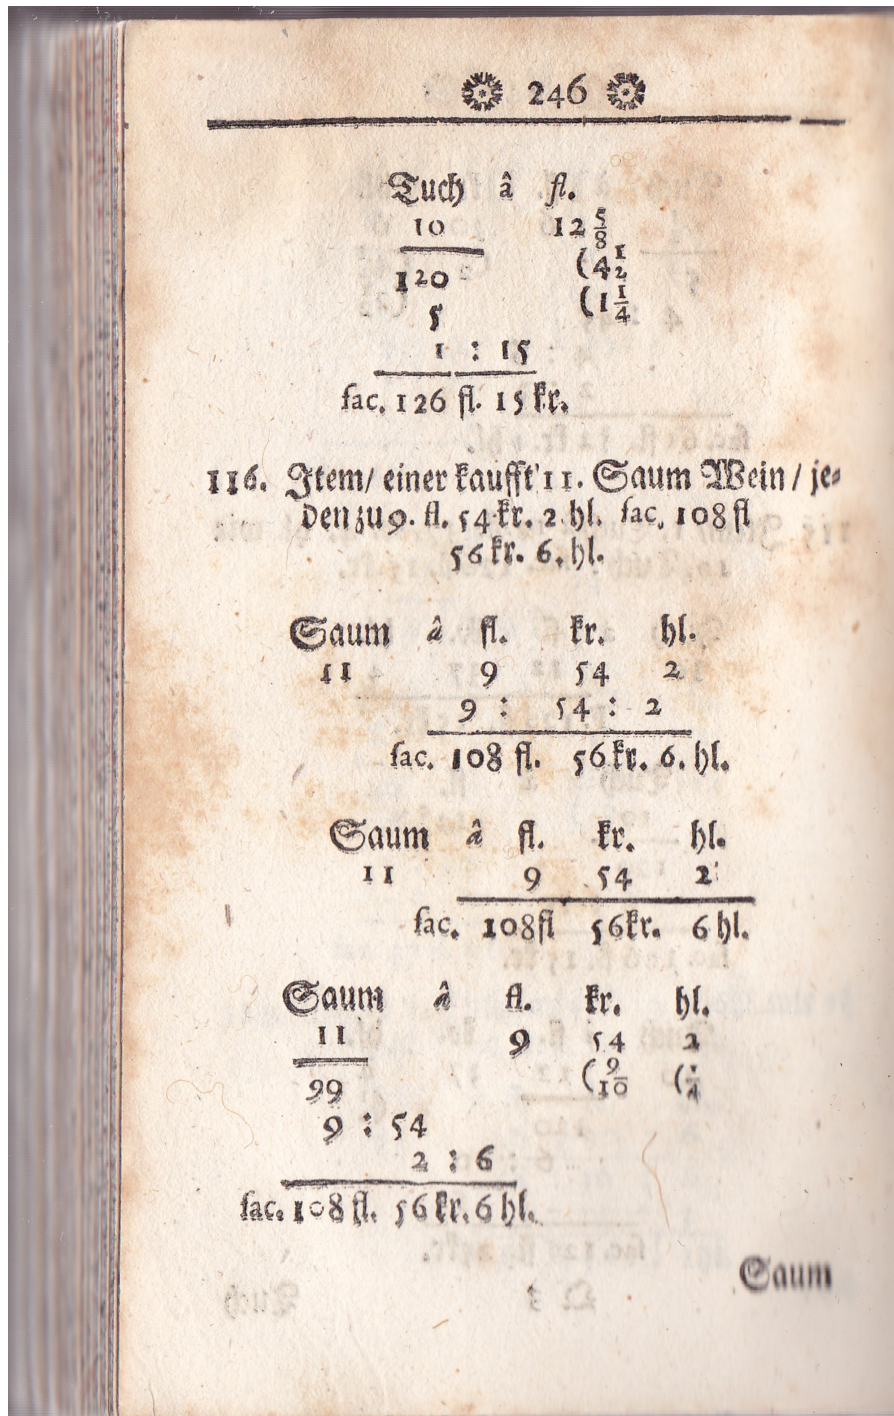 246
Tuch â fl.
10 12 5/8
120 (4 1/2
5 (1 1/4
1 : 15
fac. 126 fl. 15 kr.
116. Item/ einer kaufft 11. Saum Wein/ je-
den zu 9. fl. 54 kr. 2 hl. fac. 108 fl
56 kr. 6. hl.
Saum â fl. kr. hl.
11 9 54 2
9 : 54 : 2
fac. 108 fl. 56 kr. 6. hl.
Saum â fl. kr. hl.
11 9 54 2
fac. 108 fl 56 kr. 6 hl.
Saum â fl. kr. hl.
11 9 54 2
99 (9/10 (1/4
9 : 54
2 : 6
fac. 108 fl. 56 kr. 6 hl.
Saum